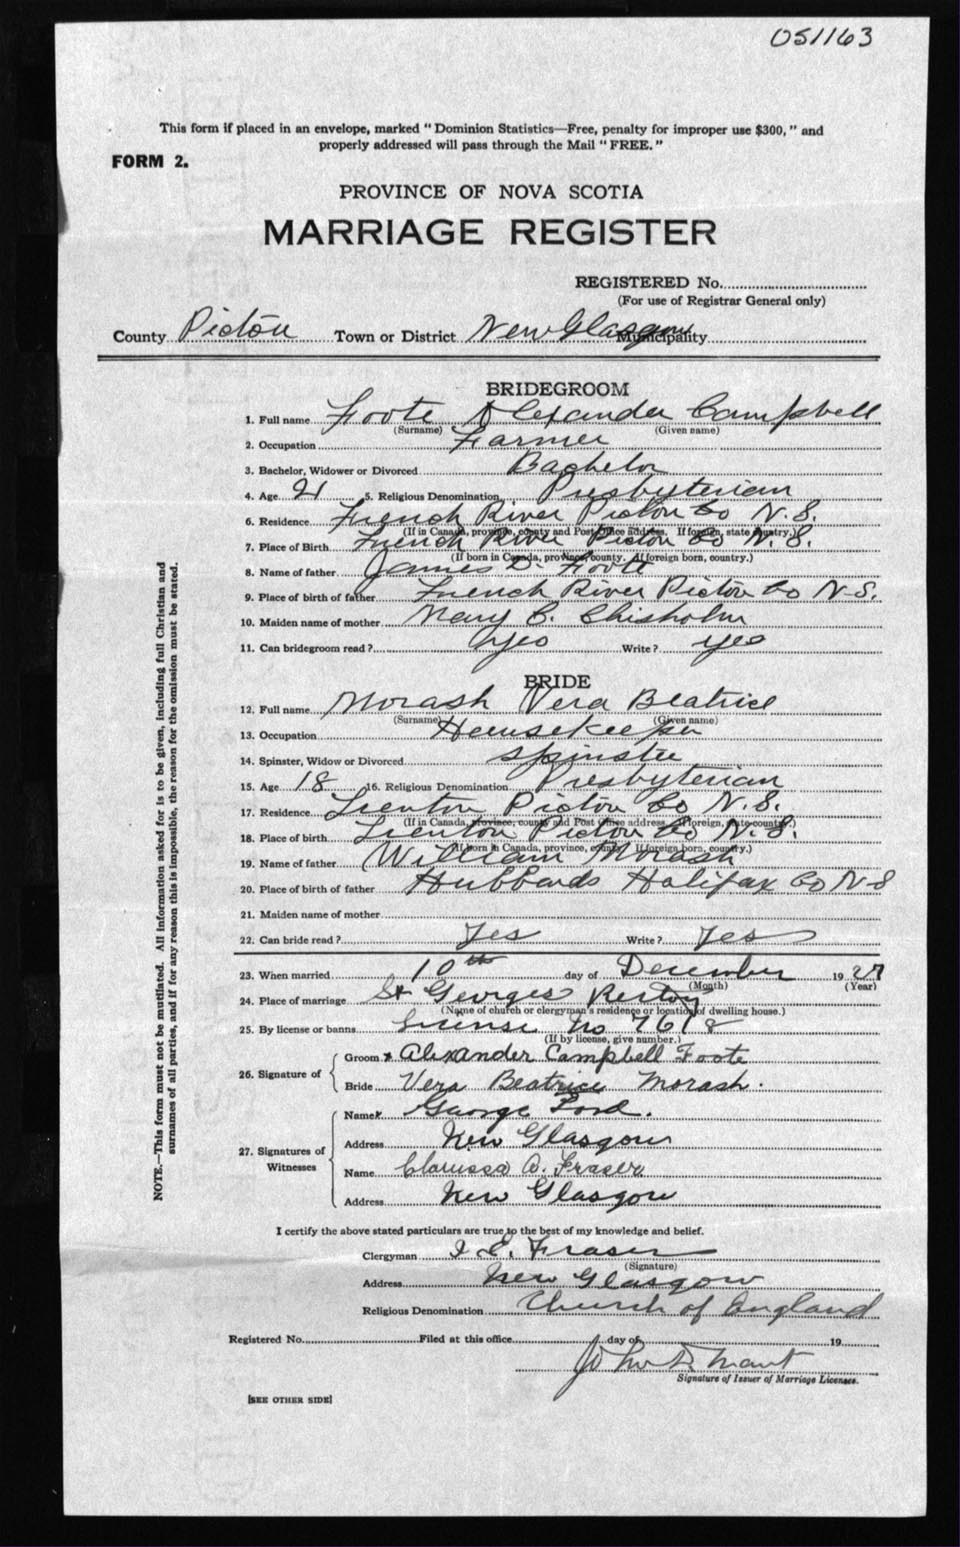 051163
This form if placed in an envelope, marked "Dominion Statistics—Free, penalty for improper use $300," and
properly addressed will pass through the Mail "FREE."
FORM 2.
PROVINCE OF NOVA SCOTIA
MARRIAGE REGISTER
REGISTERED No.
(For use of Registrar General only)
County Pictou Town or District New Glasgow Municipality
BRIDEGROOM
1. Full name Foote Alexander Campbell
(Surname) (Given name)
2. Occupation Farmer
3. Bachelor, Widower or Divorced Bachelor
4. Age 21 5. Religious Denomination Presbyterian
6. Residence French River Pictou Co N.S.
(If in Canada, province, county and Post Office address. If foreign, state country.)
7. Place of Birth French River Pictou Co N.S.
(If born in Canada, province, county. If foreign born, country.)
8. Name of father James D. Foote
9. Place of birth of father French River Pictou Co N-S.
10. Maiden name of mother Mary B. Chisholm
11. Can bridegroom read? yes Write? yes
BRIDE
12. Full name Morash Vera Beatrice
(Surname) (Given name)
13. Occupation Housekeeper
14. Spinster, Widow or Divorced Spinster
15. Age 18 16. Religious Denomination Presbyterian
17. Residence Trenton Pictou Co N.S.
(If in Canada, province, county and Post Office address. If foreign, state country.)
18. Place of birth Trenton Pictou Co N.S.
(If born in Canada, province, county. If foreign born, country.)
19. Name of father William Morash
20. Place of birth of father Hubbards Halifax Co N-S
21. Maiden name of mother
22. Can bride read? Yes Write? Yes
23. When married 10th day of December 1927
(Month) (Year)
24. Place of marriage St Georges Rectory
(Name of church or clergyman's residence or location of dwelling house.)
25. By license or banns License No 7618
(If by license, give number.)
26. Signature of
Groom Alexander Campbell Foote
Bride Vera Beatrice Morash.
27. Signatures of Witnesses
Name George Ford.
Address New Glasgow
Name Clarissa A. Fraser
Address New Glasgow
I certify the above stated particulars are true to the best of my knowledge and belief.
Clergyman I E. Fraser
(Signature)
Address New Glasgow
Religious Denomination Church of England
Registered No. Filed at this office day of 19
John
Signature of Issuer of Marriage Licenses.
[SEE OTHER SIDE]
NOTE.—This form must not be mutilated. All information asked for is to be given, including full Christian and
surnames of all parties, and if for any reason this is impossible, the reason for the omission must be stated.